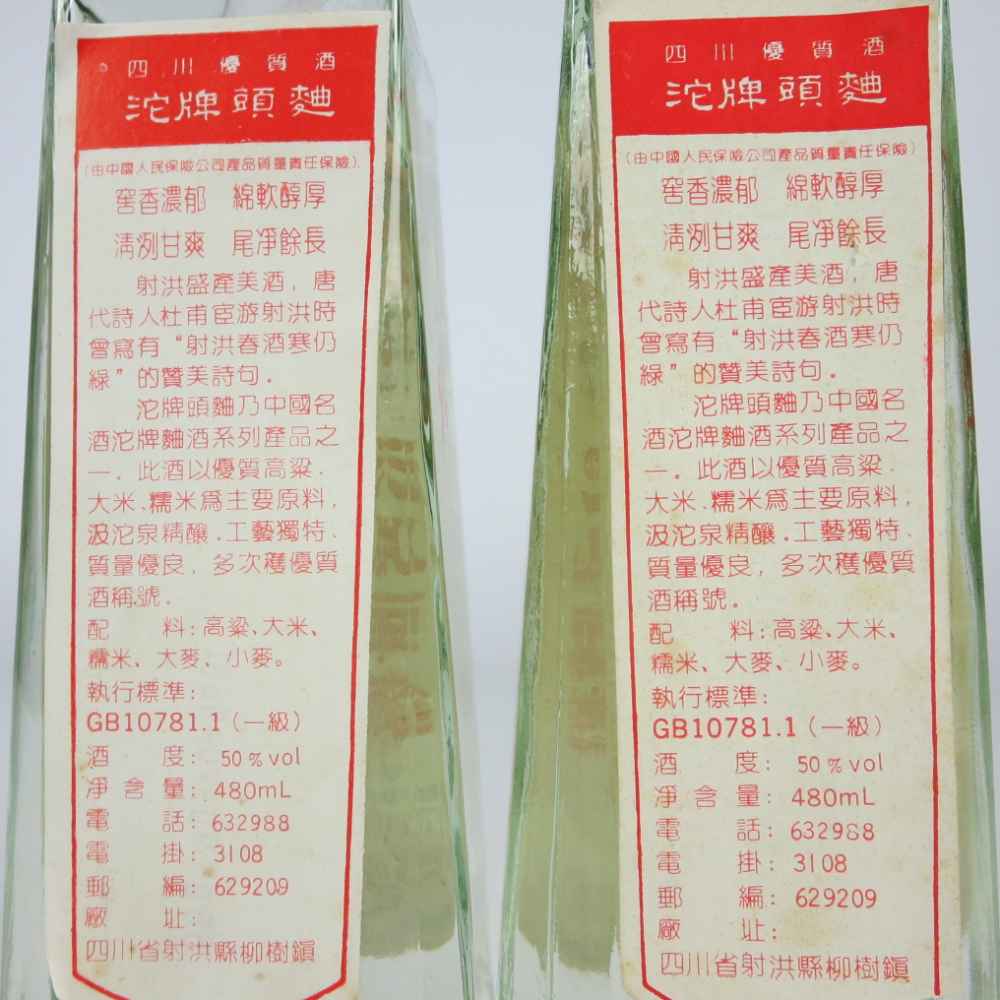 四川優質酒
沱牌頭麯
(由中國人民保險公司產品質量責任保險)
窖香濃郁 綿軟醇厚
清冽甘爽 尾凈餘長
射洪盛產美酒，唐
代詩人杜甫宦游射洪時
曾寫有“射洪春酒寒仍
綠”的贊美詩句.
沱牌頭麯乃中國名
酒沱牌麯酒系列產品之
一. 此酒以優質高粱.
大米、糯米爲主要原料,
汲沱泉精釀.工藝獨特、
質量優良, 多次獲優質
酒稱號.
配 料:高粱、大米、
糯米、大麥、小麥。
執行標準:
GB10781.1(一級)
酒 度: 50%vol
凈含量: 480mL
電 話: 632988
電 掛: 3108
郵 編: 629209
廠 址:
四川省射洪縣柳樹鎮
四川優質酒
沱牌頭麯
(由中國人民保險公司產品質量責任保險)
窖香濃郁 綿軟醇厚
清冽甘爽 尾凈餘長
射洪盛產美酒，唐
代詩人杜甫宦游射洪時
曾寫有“射洪春酒寒仍
綠”的贊美詩句.
沱牌頭麯乃中國名
酒沱牌麯酒系列產品之
一. 此酒以優質高粱.
大米、糯米爲主要原料,
汲沱泉精釀.工藝獨特、
質量優良, 多次獲優質
酒稱號.
配 料:高粱、大米、
糯米、大麥、小麥。
執行標準:
GB10781.1(一級)
酒 度: 50%vol
凈含量: 480mL
電 話: 632988
電 掛: 3108
郵 編: 629209
廠 址:
四川省射洪縣柳樹鎮